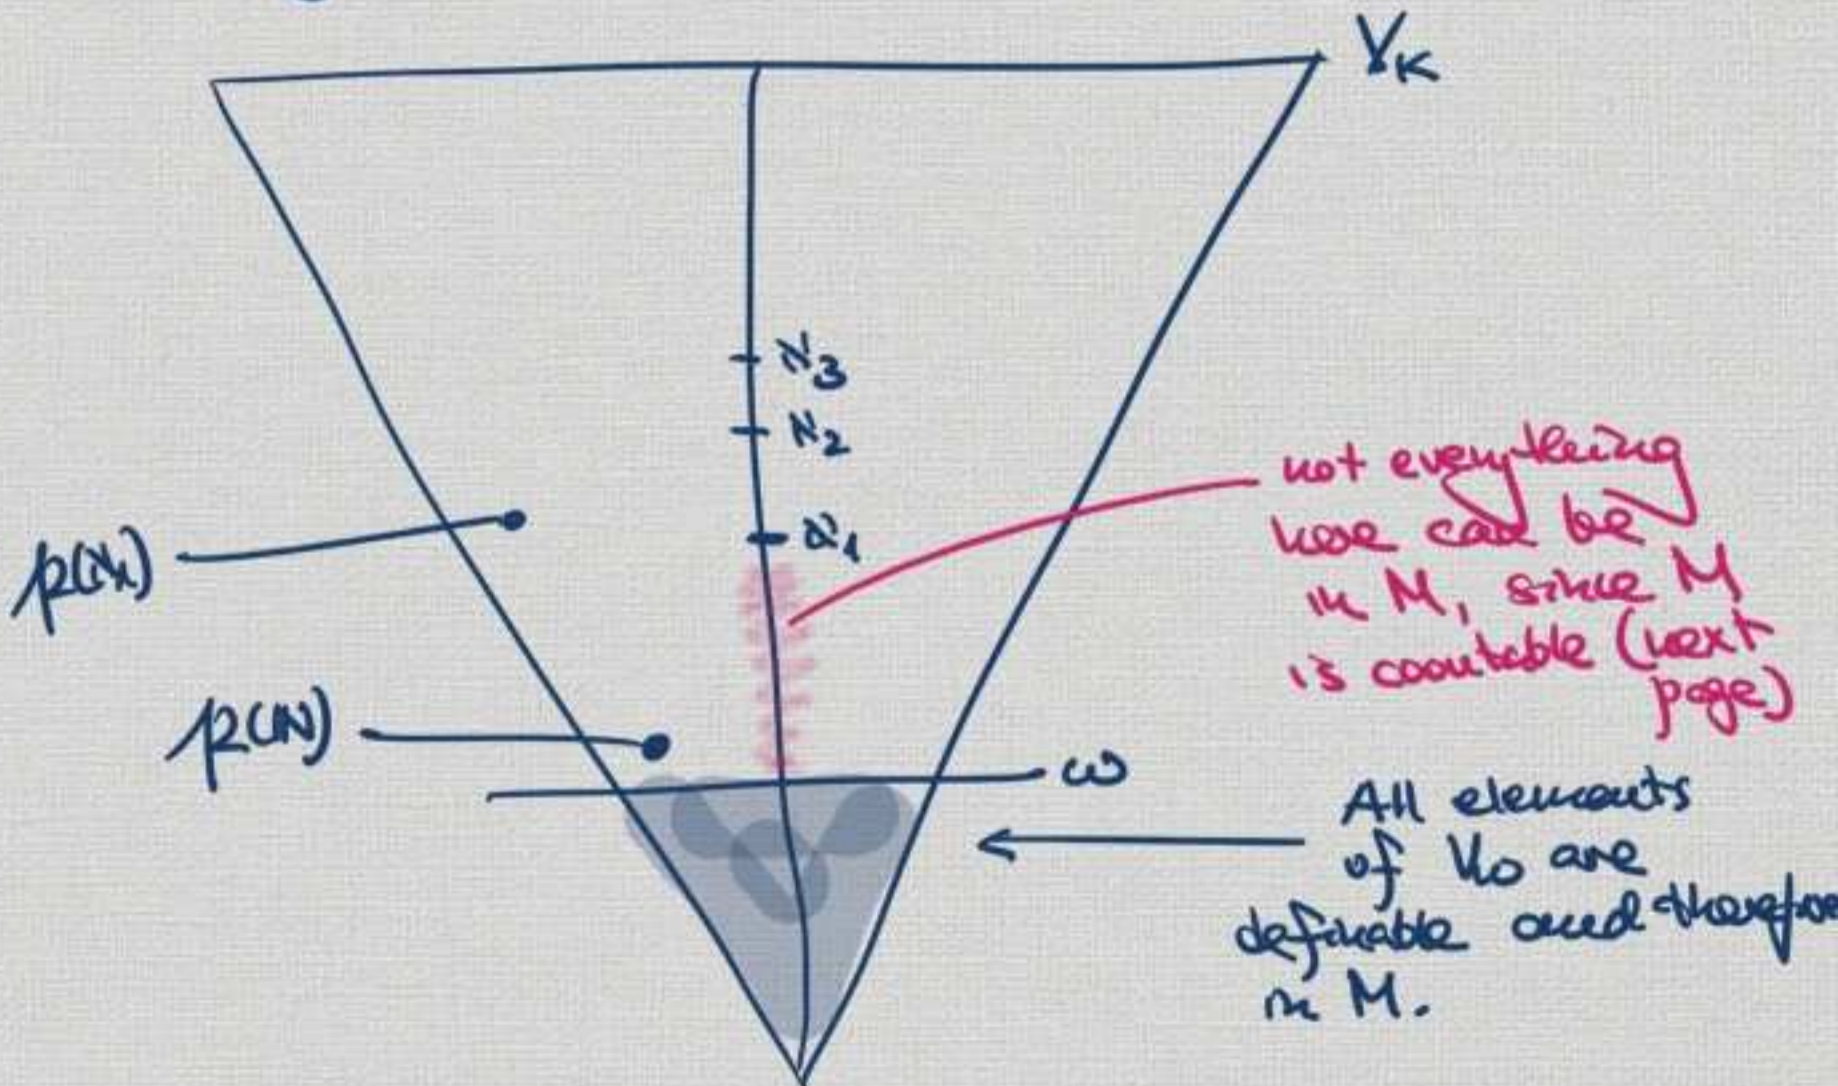 V_κ
ℵ₃
ℵ₂
ℵ₁
not everything
here can be
in M, since M
is countable (next
page)
p(ℵ₁)
p(ℕ)
ω
All elements
of V_ω are
definable and therefore
in M.